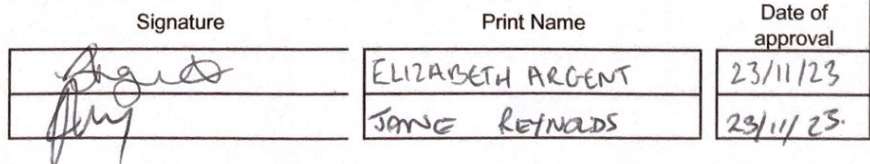 Signature Print Name Date of
approval
ELIZABETH ARGENT 23/11/23
JANE REYNOLDS 23/11/23.